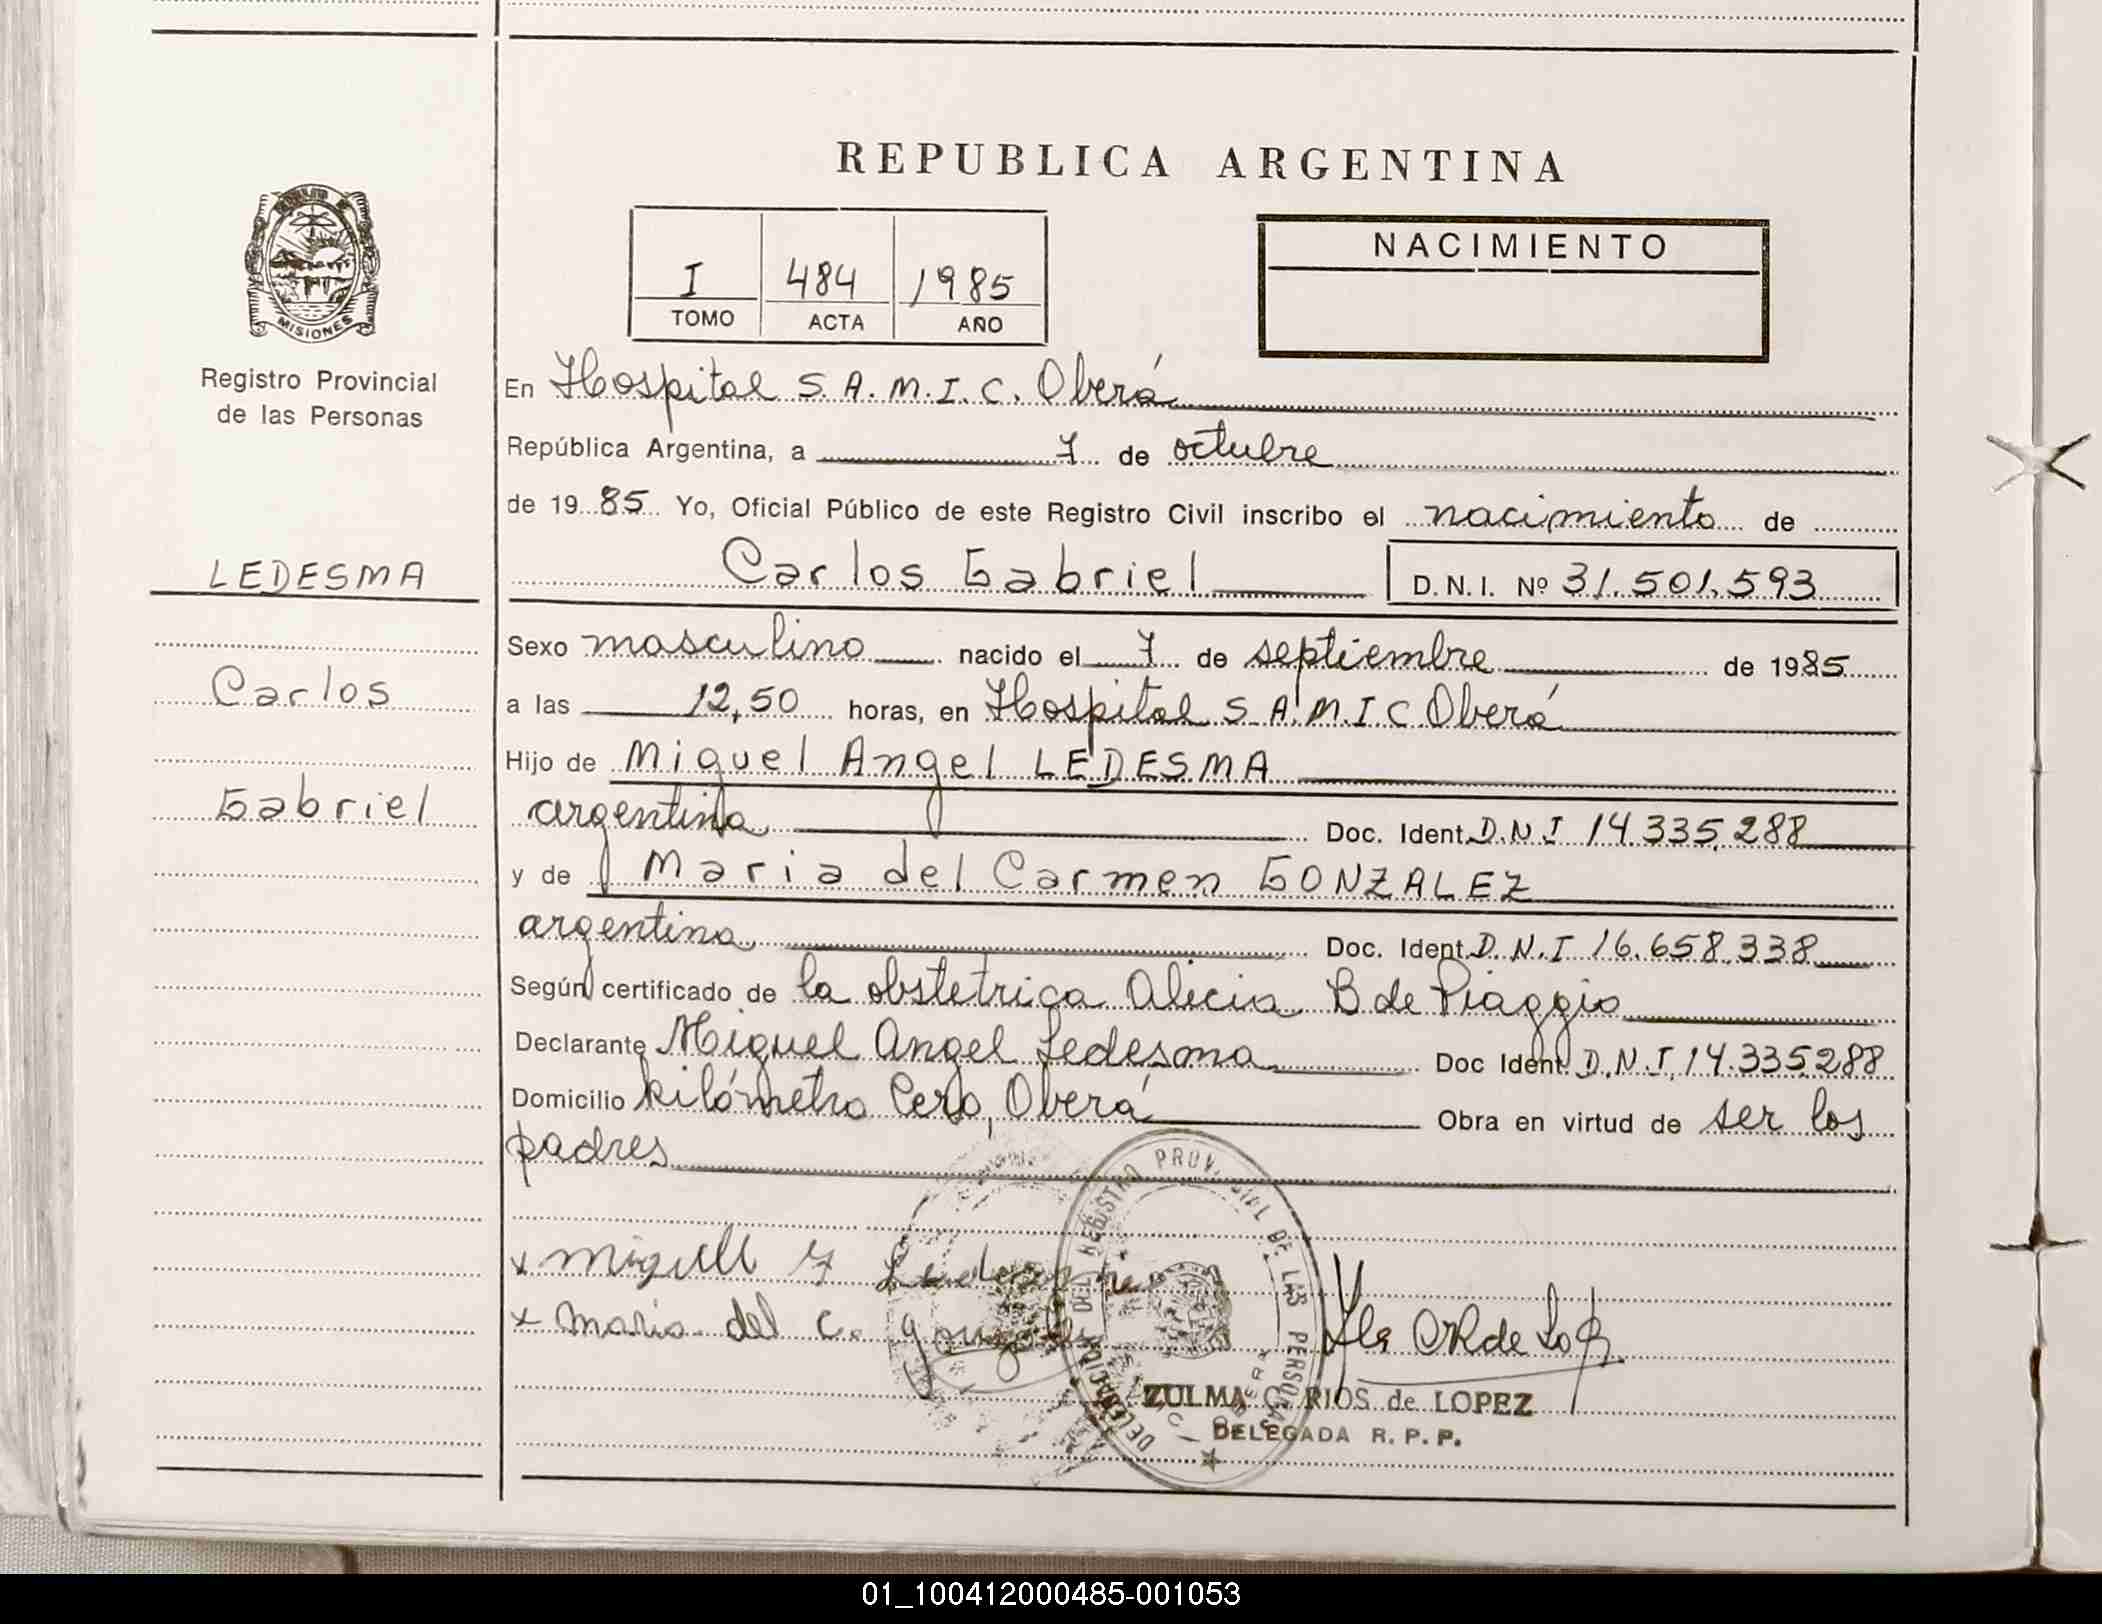 REPUBLICA ARGENTINA
NACIMIENTO
I 484 1985
TOMO ACTA AÑO
MISIONES
Registro Provincial
de las Personas
LEDESMA
Carlos
Gabriel
En Hospital S.A.M.I.C. Oberá
República Argentina, a 7 de octubre
de 1985 Yo, Oficial Público de este Registro Civil inscribo el nacimiento de
Carlos Gabriel D.N.I. Nº 31.501.593
Sexo masculino nacido el 7 de septiembre de 1985
a las 12,50 horas, en Hospital S.A.M.I.C Oberá
Hijo de Miguel Angel LEDESMA
argentina Doc. Ident. D.N.I 14.335.288
y de Maria del Carmen GONZALEZ
argentina Doc. Ident. D.N.I 16.658.338
Según certificado de la obstetrica Alicia B de Piaggio
Declarante Miguel Angel Ledesma Doc Ident. D.N.I. 14.335.288
Domicilio kilómetro Cero, Oberá Obra en virtud de ser los
padres
x Miguel Ledesma
x Maria del C. Gonzalez
DEL REGISTRO PROVINCIAL DE LAS PERSONAS
ZULMA C. RIOS de LOPEZ
DELEGADA R.P.P.
01_100412000485-001053